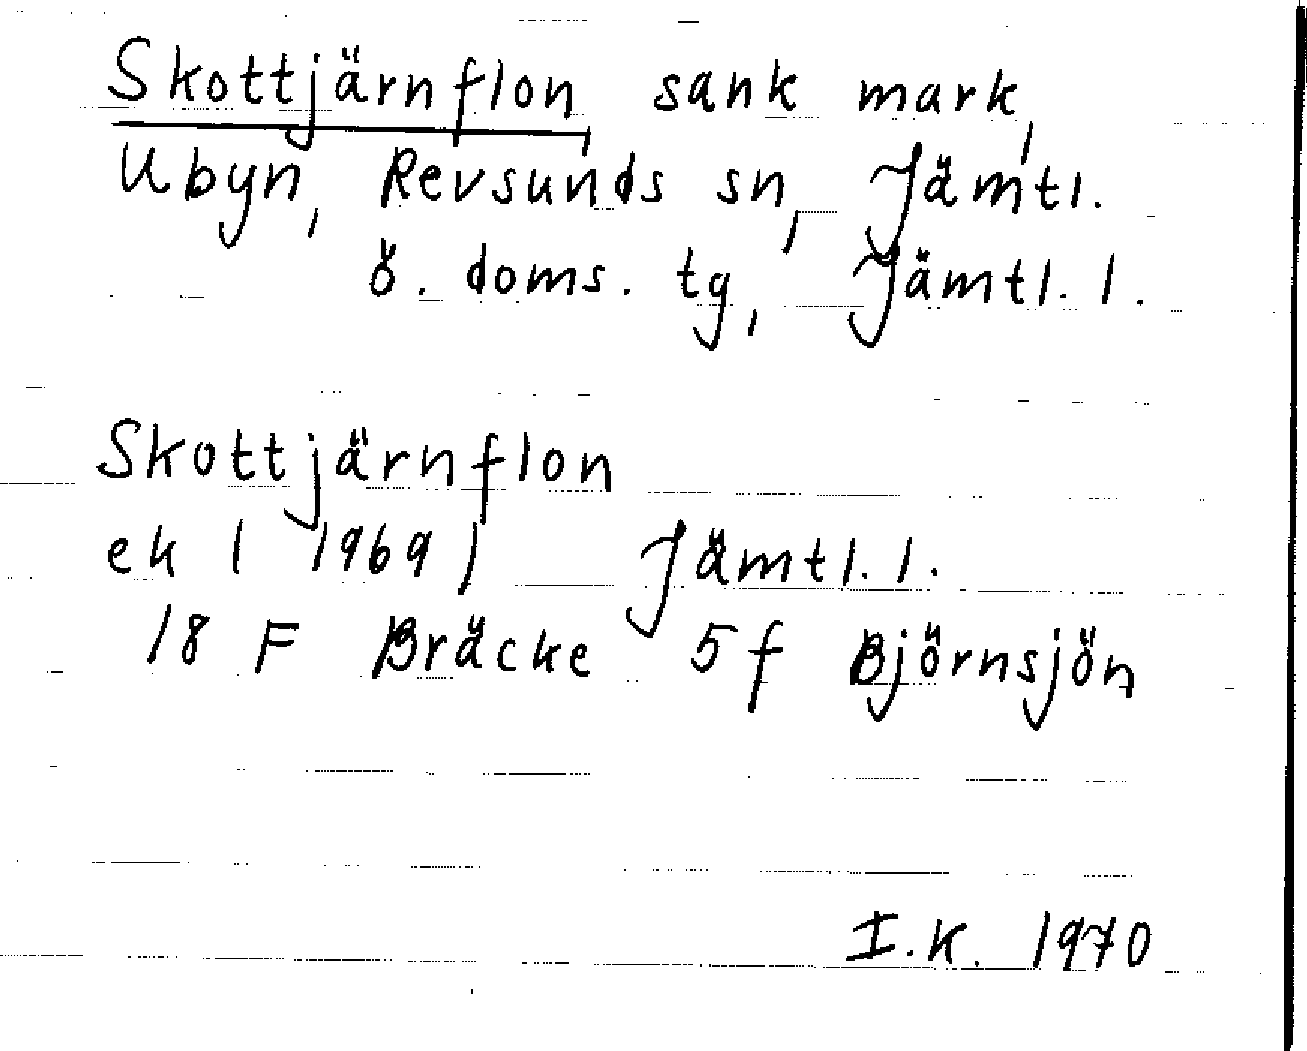 Skottjärnflon, sank mark,
Ubyn, Revsunds sn, Jämtl.
ö. doms. tg, Jämtl. l.
Skottjärnflon
ek ( 1969 ) Jämtl. l.
18 F Bräcke 5 f Björnsjön
I.K. 1970